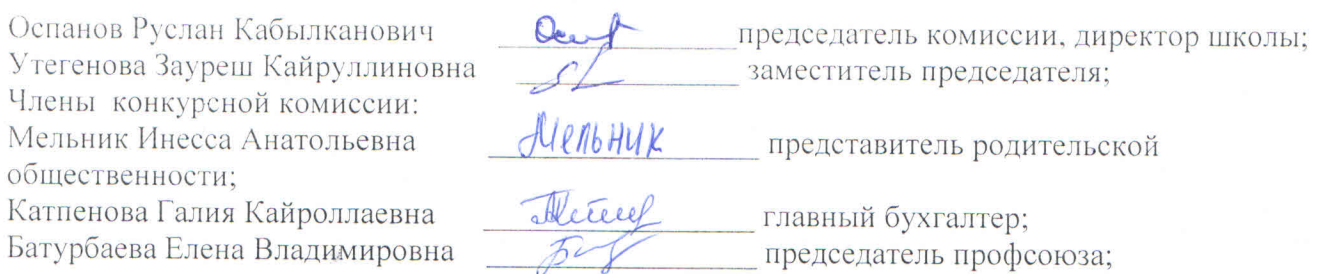 Оспанов Руслан Кабылканович председатель комиссии, директор школы;
Утегенова Зауреш Кайруллиновна заместитель председателя;
Члены конкурсной комиссии:
Мельник Инесса Анатольевна Мельник представитель родительской
общественности;
Катпенова Галия Кайроллаевна главный бухгалтер;
Батурбаева Елена Владимировна председатель профсоюза;